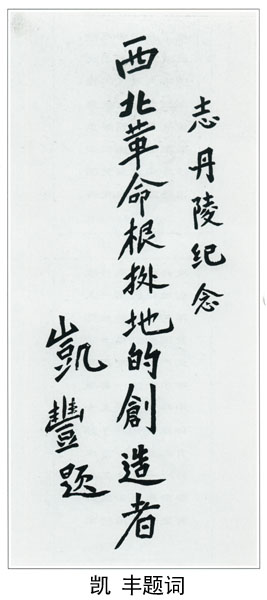 志丹陵纪念
西北革命根据地的創造者
凱豐题
凯 丰题词